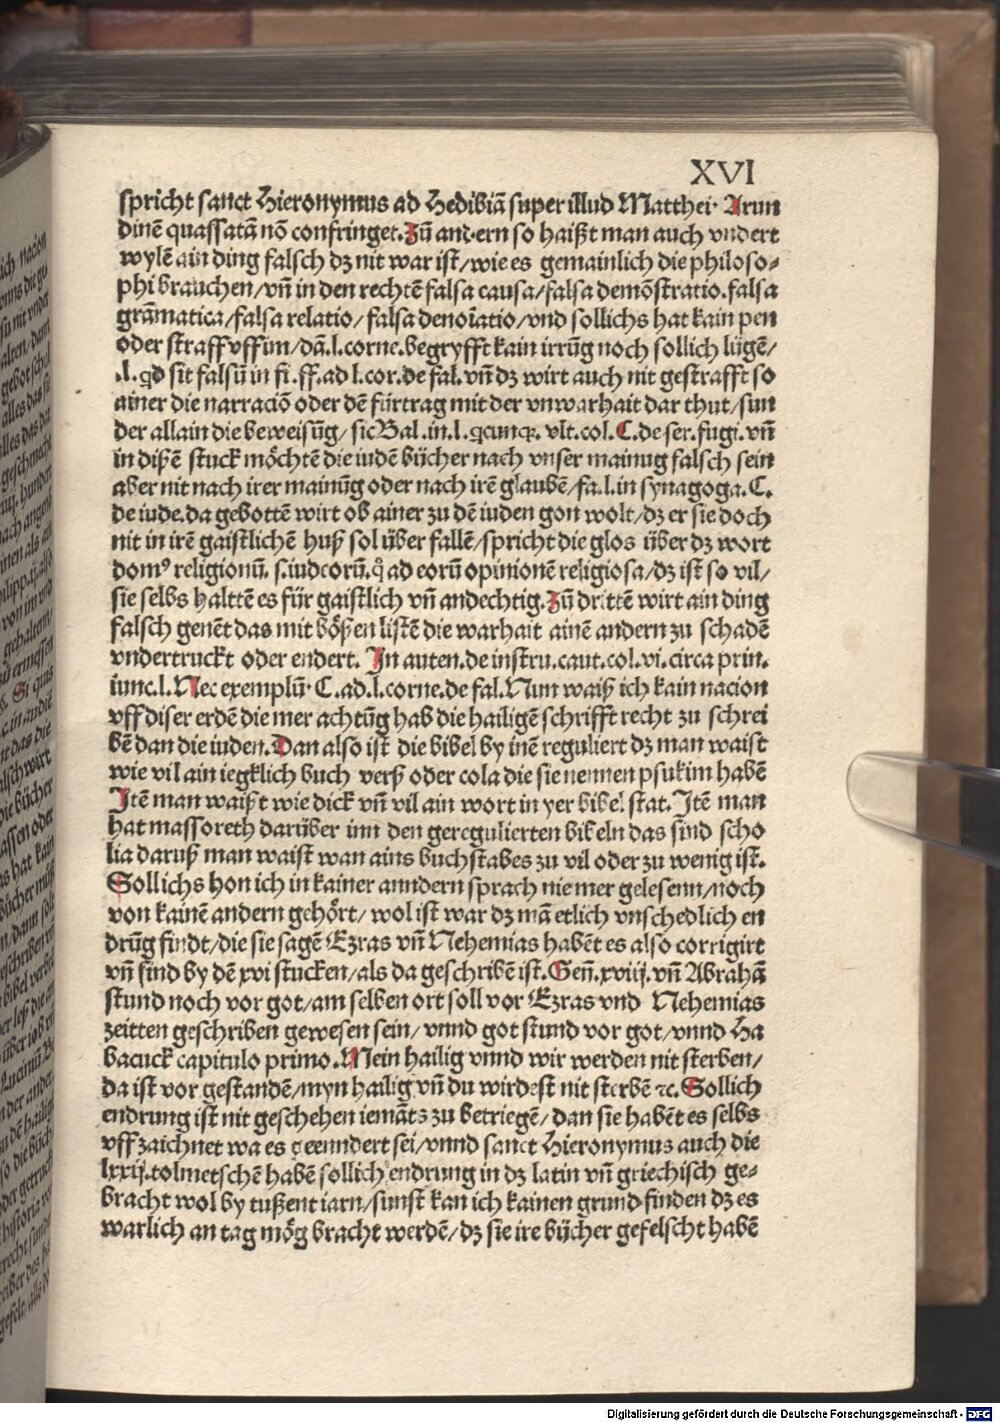 XVI
spricht sanct Hieronymus ad Hedibiā super illud Matthei. Arun
dinē quassatā nō confringet. Zū and·ern so haißt man auch vndert
wylē ain ding falsch dz nit war ist/wie es gemainlich die philoso⸗
phi brauchen/vñ in den rechtē falsa causa/falsa demōstratio.falsa
grāmatica/falsa relatio/falsa denoīatio/vnd sollichs hat kain pen
oder straff vff im/dā.l.corne.begryfft kain irrūg noch sollich lügē/
.l. qd sit falsū in fi.ff.ad l.cor.de fal.vñ dz wirt auch nit gestrafft so
ainer die narraciō oder dē fürtrag mit der vnwarhait dar thut/sun
der allain die beweisūg/sic Bal.in.l.qcunq.vlt.col.C.de ser.fugi.vñ
in dißē stuck möchtē die iudē bücher nach vnser mainug falsch sein
aber nit nach irer mainūg oder nach irē glaubē/fa.l.in synagoga.C.
de iude.da gebottē wirt ob ainer zu dē iuden gon wolt/dz er sie doch
nit in irē gaistlichē huß sol über fallē/spricht die glos über dz wort
domꝰ religionū.s.iudeorū.q̊ ad eorū opinionē religiosa/dz ist so vil/
sie selbs halttē es für gaistlich vñ andechtig.Zū drittē wirt ain ding
falsch genēt das mit bößen listē die warhait ainē andern zu schadē
vndertruckt oder endert. In auten.de instru.caut.col.vi.circa prin.
iunc.l.Nec exemplū.C.ad.l.corne.de fal.Nun waiß ich kain nacion
vff diser erdē die mer achtūg hab die hailigē schrifft recht zu schrei
bē dan die iuden.Dan also ist die bibel by inē reguliert dz man waist
wie vil ain iegklich buch verß oder cola die sie nennen psukim habē
Itē man waißt wie dick vñ vil ain wort in yer bibel stat.Itē man
hat massoreth darüber inn den geregulierten bibeln das sind scho
lia daruß man waist wan ains buchstabes zu vil oder zu wenig ist.
Sollichs hon ich in kainer anndern sprach nie mer gelesenn/noch
von kainē andern gehört/wol ist war dz mā etlich vnschedlich en
drūg findt/die sie sagē Ezras vñ Nehemias habēt es also corrigirt
vñ sind by dē xvi stucken/als da geschribē ist.Geñ.xviij.vñ Abrahā
stund noch vor got/am selben ort soll vor Ezras vnd Nehemias
zeitten geschriben gewesen sein/vnnd got stund vor got/vnnd Ha
bacuck capitulo primo.Mein hailig vnnd wir werden nit sterben/
da ist vor gestandē/myn hailig vñ du wirdest nit sterbē ⁊c.Sollich
endrung ist nit geschehen iemāts zu betriegē/dan sie habēt es selbs
vffzaichnet wa es geenndert sei/vnnd sanct Hieronymus auch die
lxxij.tolmetschē habē sollich endrung in dz latin vñ griechisch ge⸗
bracht wol by tußent iarn/sunst kan ich kainen grund finden dz es
warlich an tag mög bracht werdē/dz sie ire bücher gefelscht habē
Digitalisierung gefördert durch die Deutsche Forschungsgemeinschaft - DFG